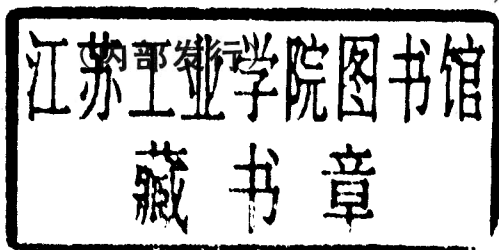 内部发行
江苏工业学院图书馆
藏书章